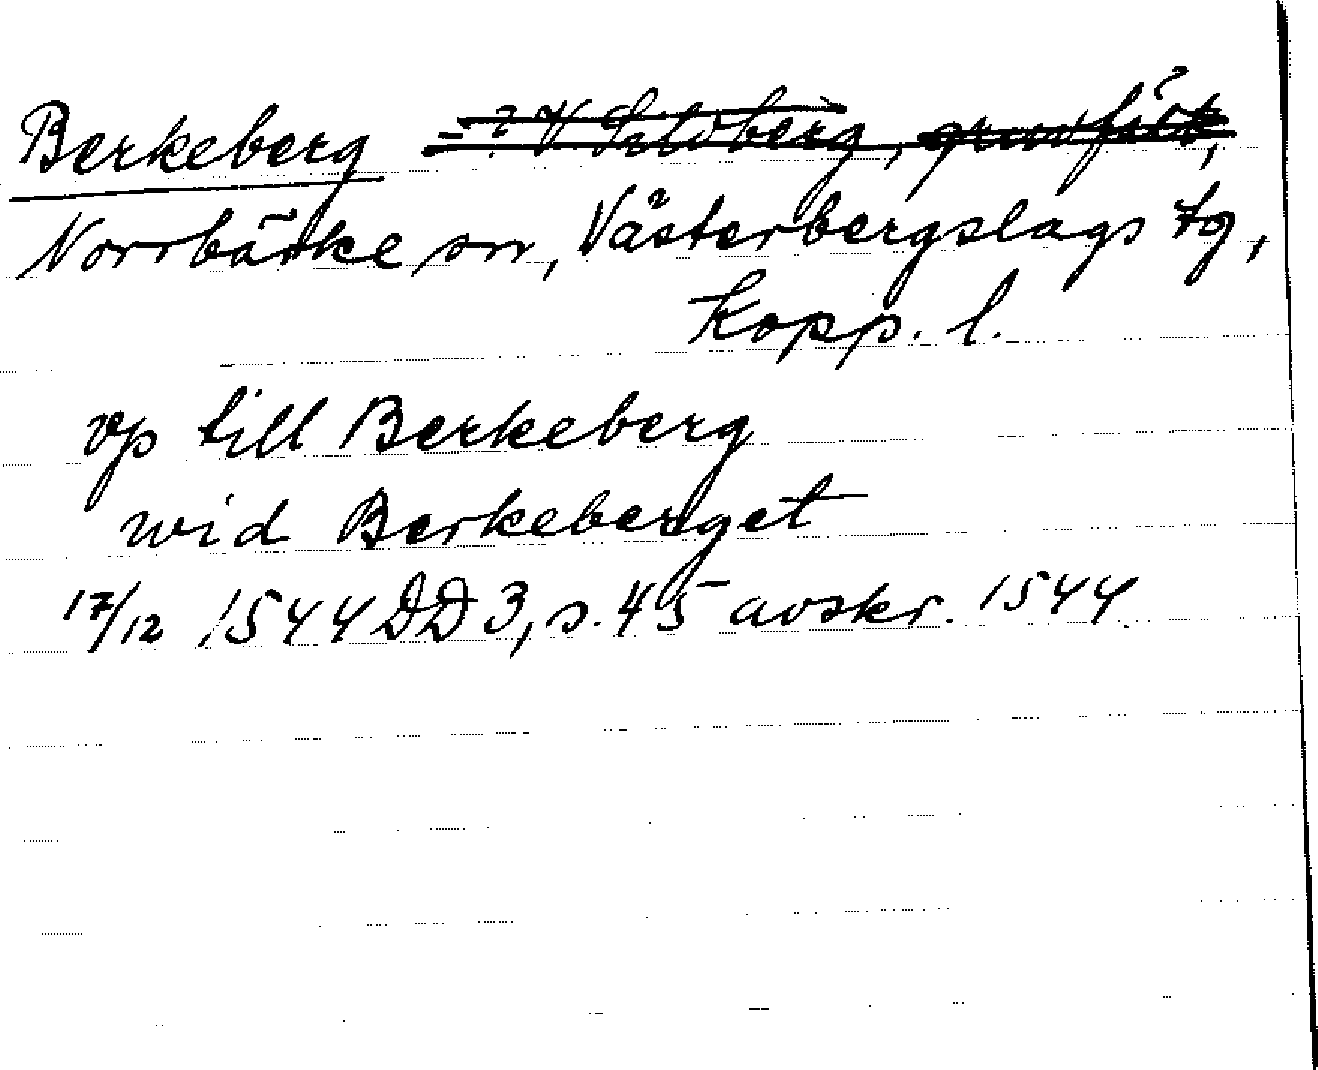 Berkeberg
Norrbärke sn, Västerbergslags tg,
Kopp. l.
vp till Berkeberg
wid Berkeberget
17/12 1544 DD 3, s. 45 avskr. 1544